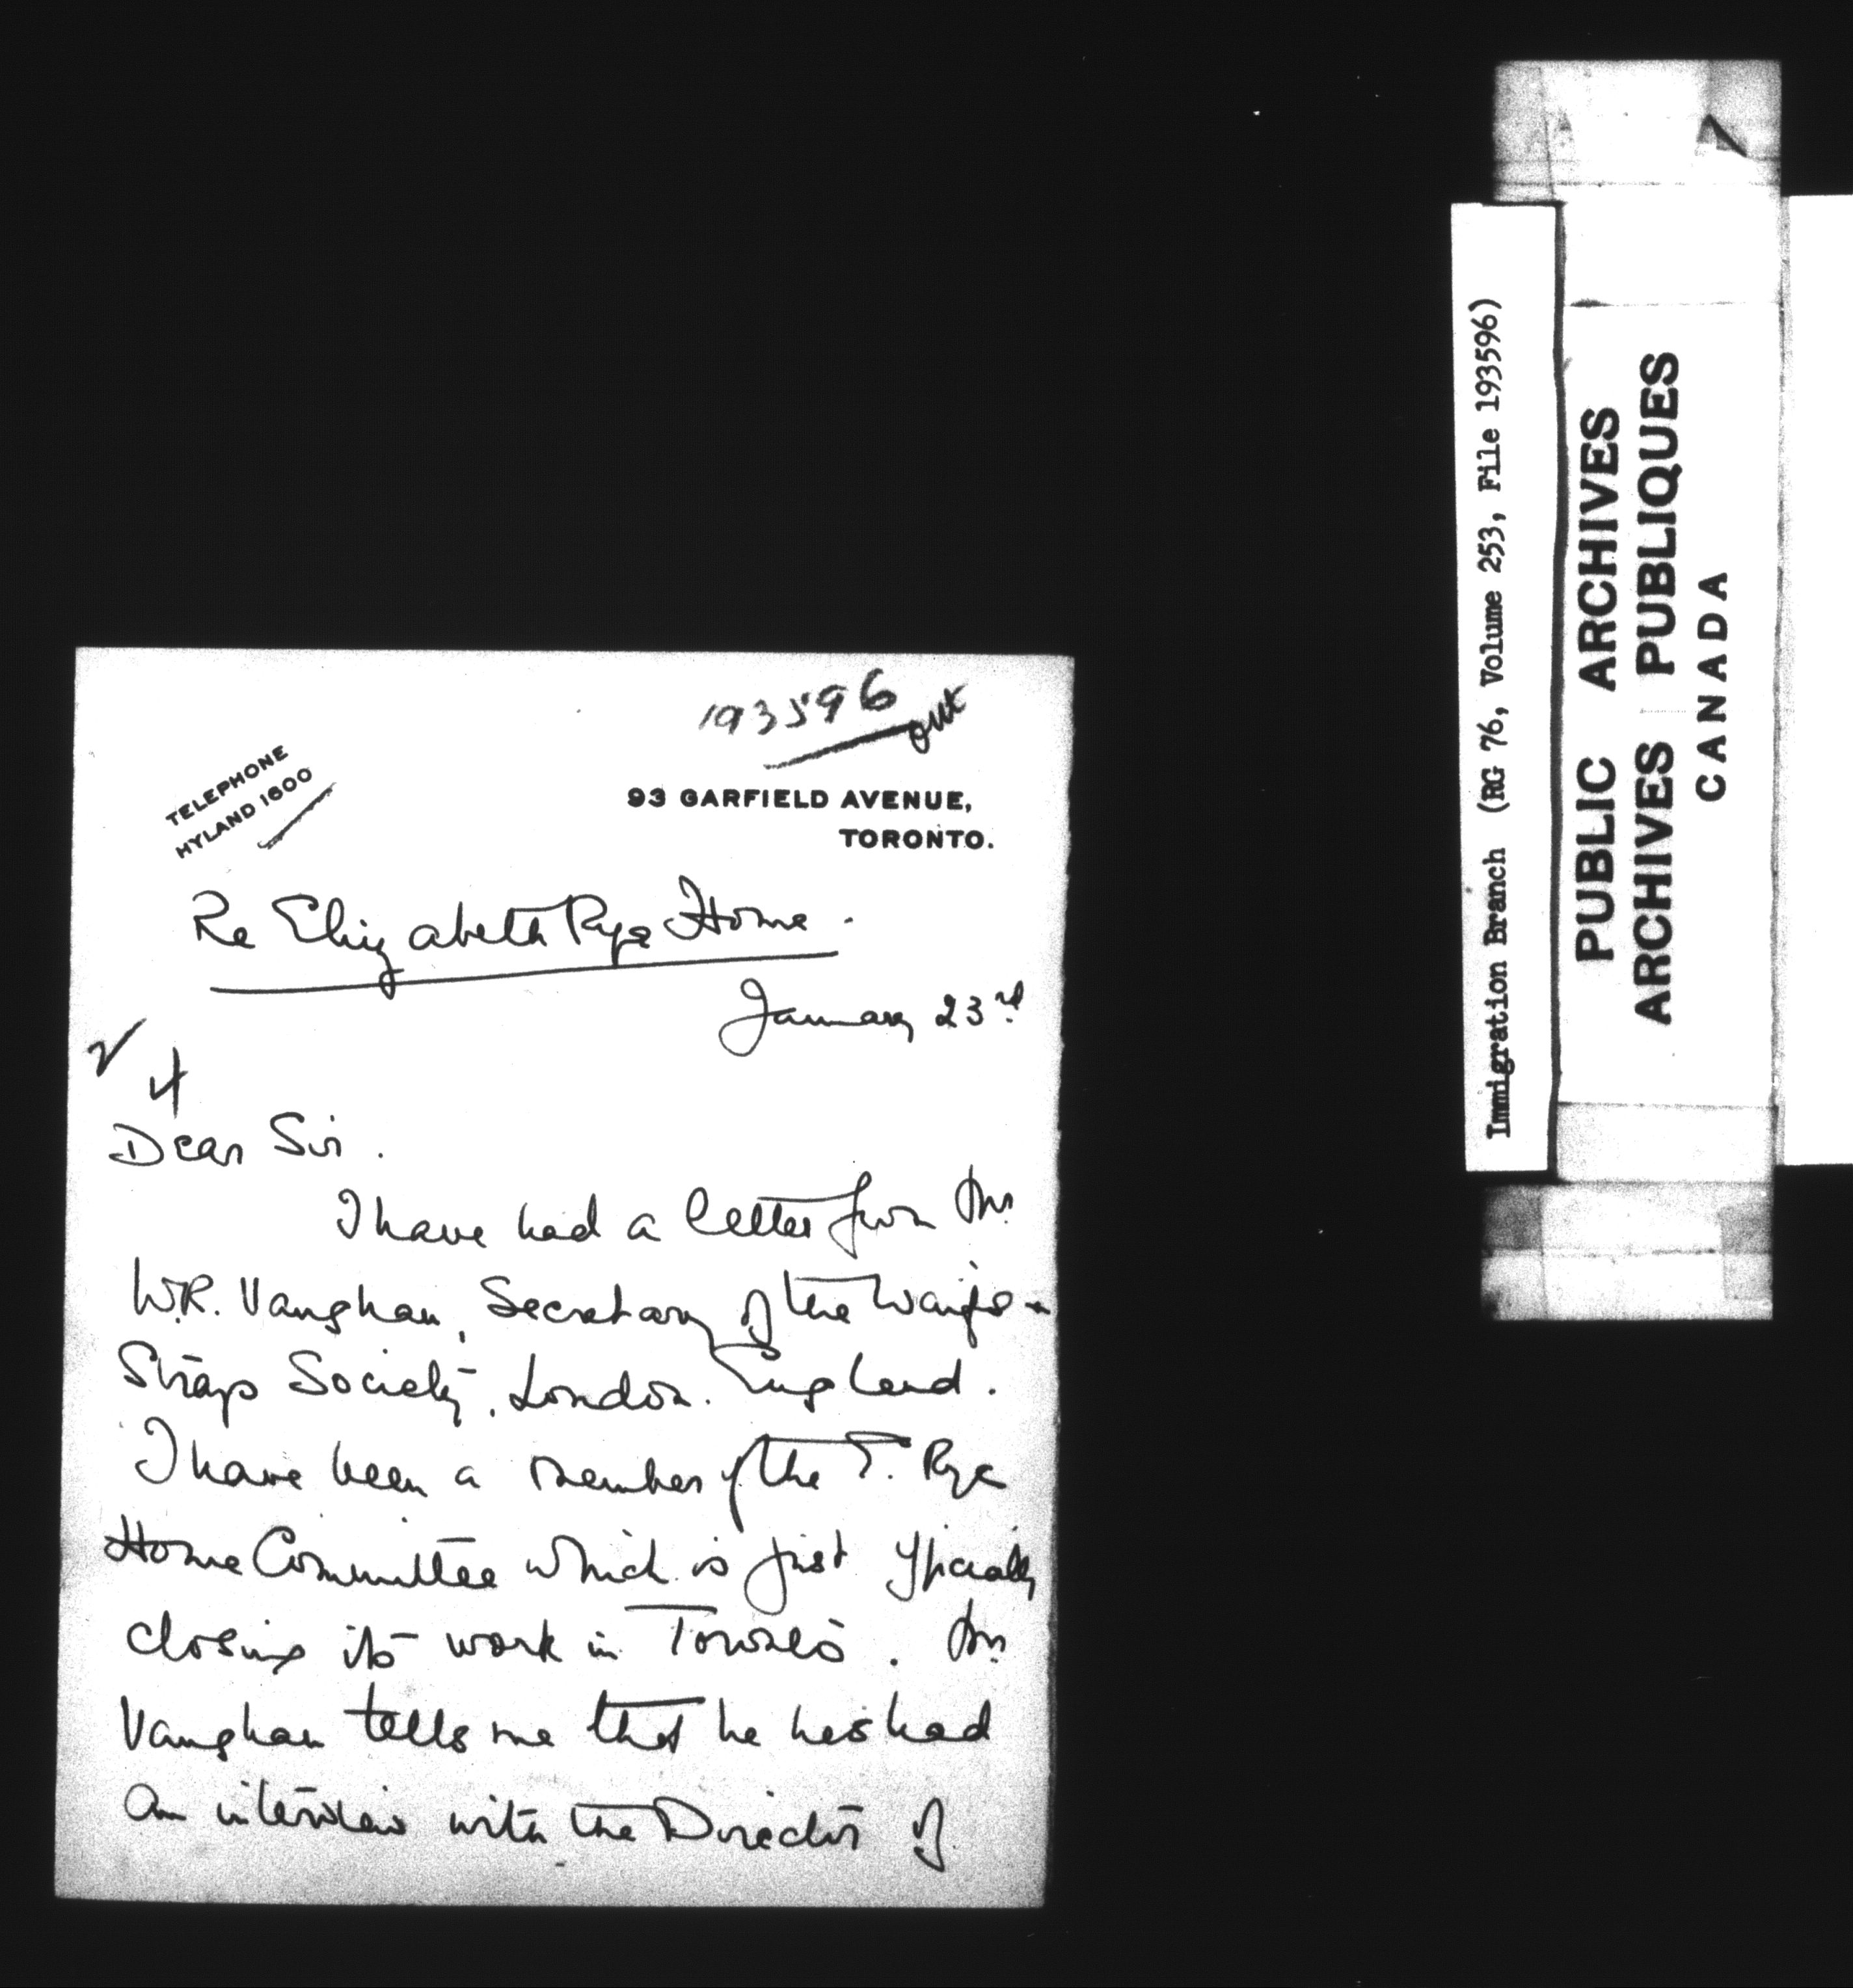 193596
out
TELEPHONE
HYLAND 1600
93 GARFIELD AVENUE,
TORONTO.
Re Elizabeth Rye Home.
January 23rd
Dear Sir.
I have had a letter from Mr
W.R. Vaughan, Secretary of the Waifs &
Strays Society, London. England.
I have been a member of the E. Rye
Home Committee which is just officially
closing its work in Toronto. Mr.
Vaughan tells me that he has had
an interview with the Director of
Immigration Branch (RG 76, Volume 253, File 193596)
PUBLIC ARCHIVES
ARCHIVES PUBLIQUES
CANADA